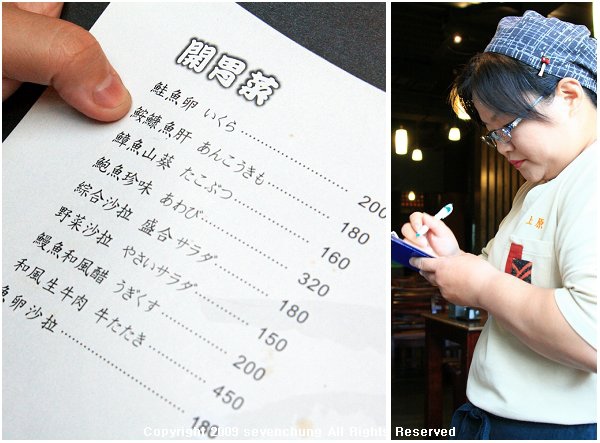 開胃菜
鮭魚卵 いくら 200
鮟鱇魚肝 あんこうきも 180
鱆魚山葵 たこぶつ 160
鮑魚珍味 あわび 320
綜合沙拉 盛合サラダ 180
野菜沙拉 やさいサラダ 150
鰻魚和風醋 うぎくす 200
和風生牛肉 牛たたき 450
魚卵沙拉 180
上原
Copyright 2009 sevenchung All Rights Reserved